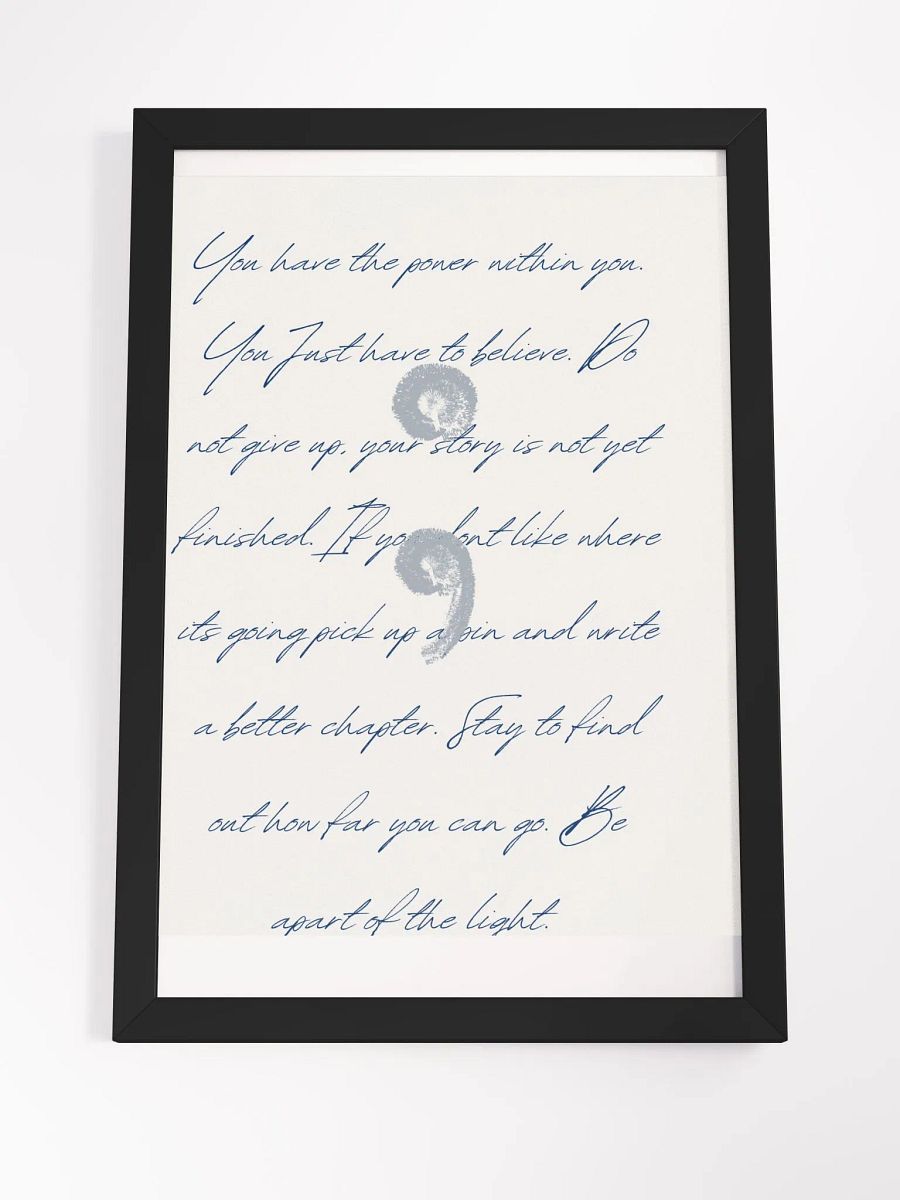 You have the power within you.
You Just have to believe. Do
not give up, your story is not yet
finished. If you dont like where
its going pick up a pin and write
a better chapter. Stay to find
out how far you can go. Be
apart of the light.